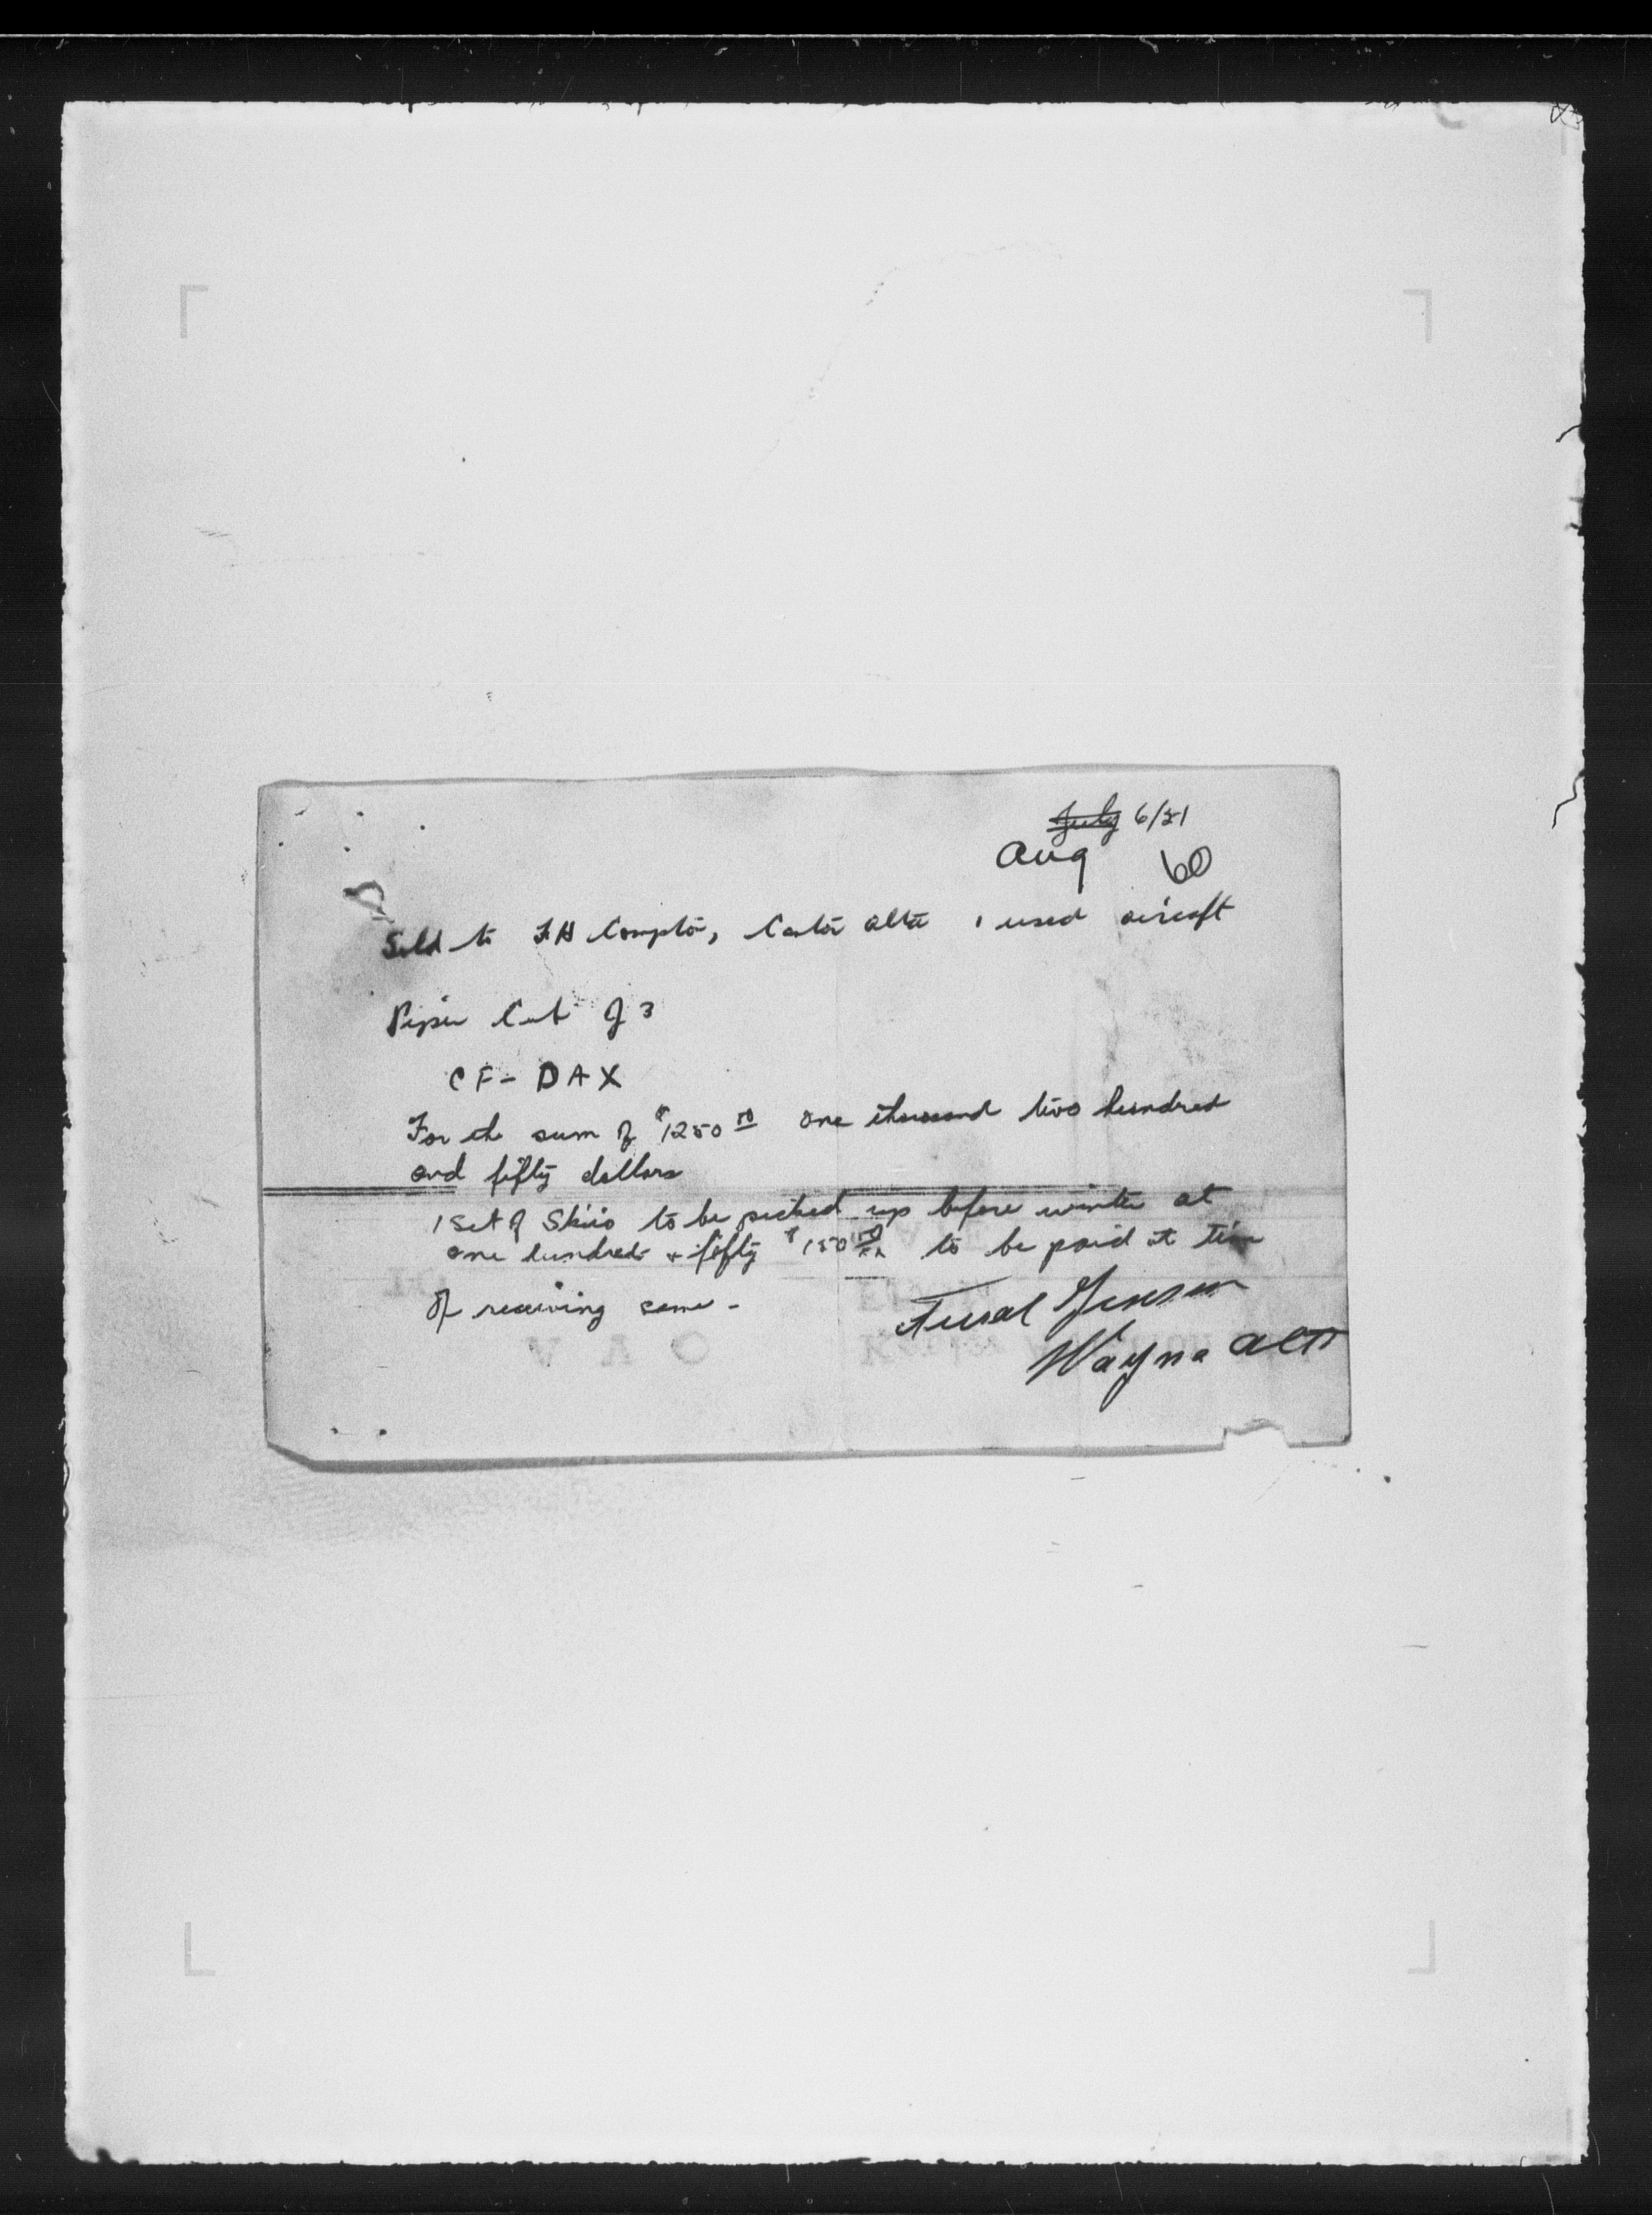 July 6/31
Aug 60
Sold to F H Compton, Castor Alta 1 used aircraft
Piper Cub J 3
CF - DAX
For the sum of $1250 00 one thousand two hundred
and fifty dollars
1 Set of Skiis to be picked up before winter at
one hundred & fifty $150 00 to be paid at time
of receiving same -
Jensen
Wayne Alta